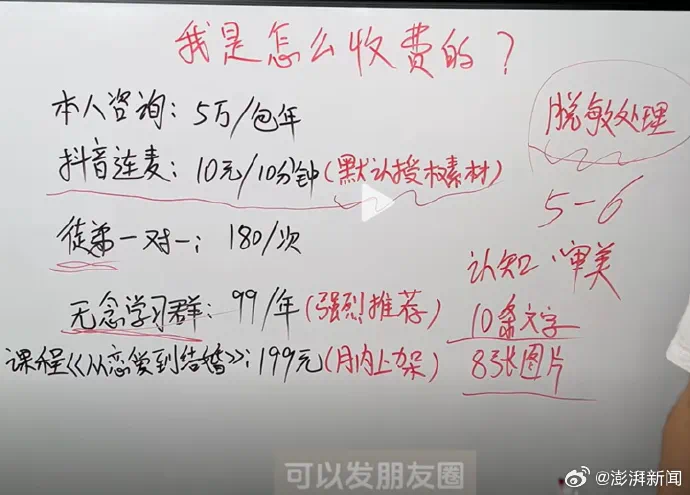 我是怎么收费的？
本人咨询：5万/包年
抖音连麦：10元/10分钟(默认授权素材)
徒弟一对一：180/次
无念学习群：99/年(强烈推荐)
课程《从恋爱到结婚》：199元(月内上架)
脱敏处理
5-6
认知、审美
10条文字
8张图片
可以发朋友圈
@澎湃新闻